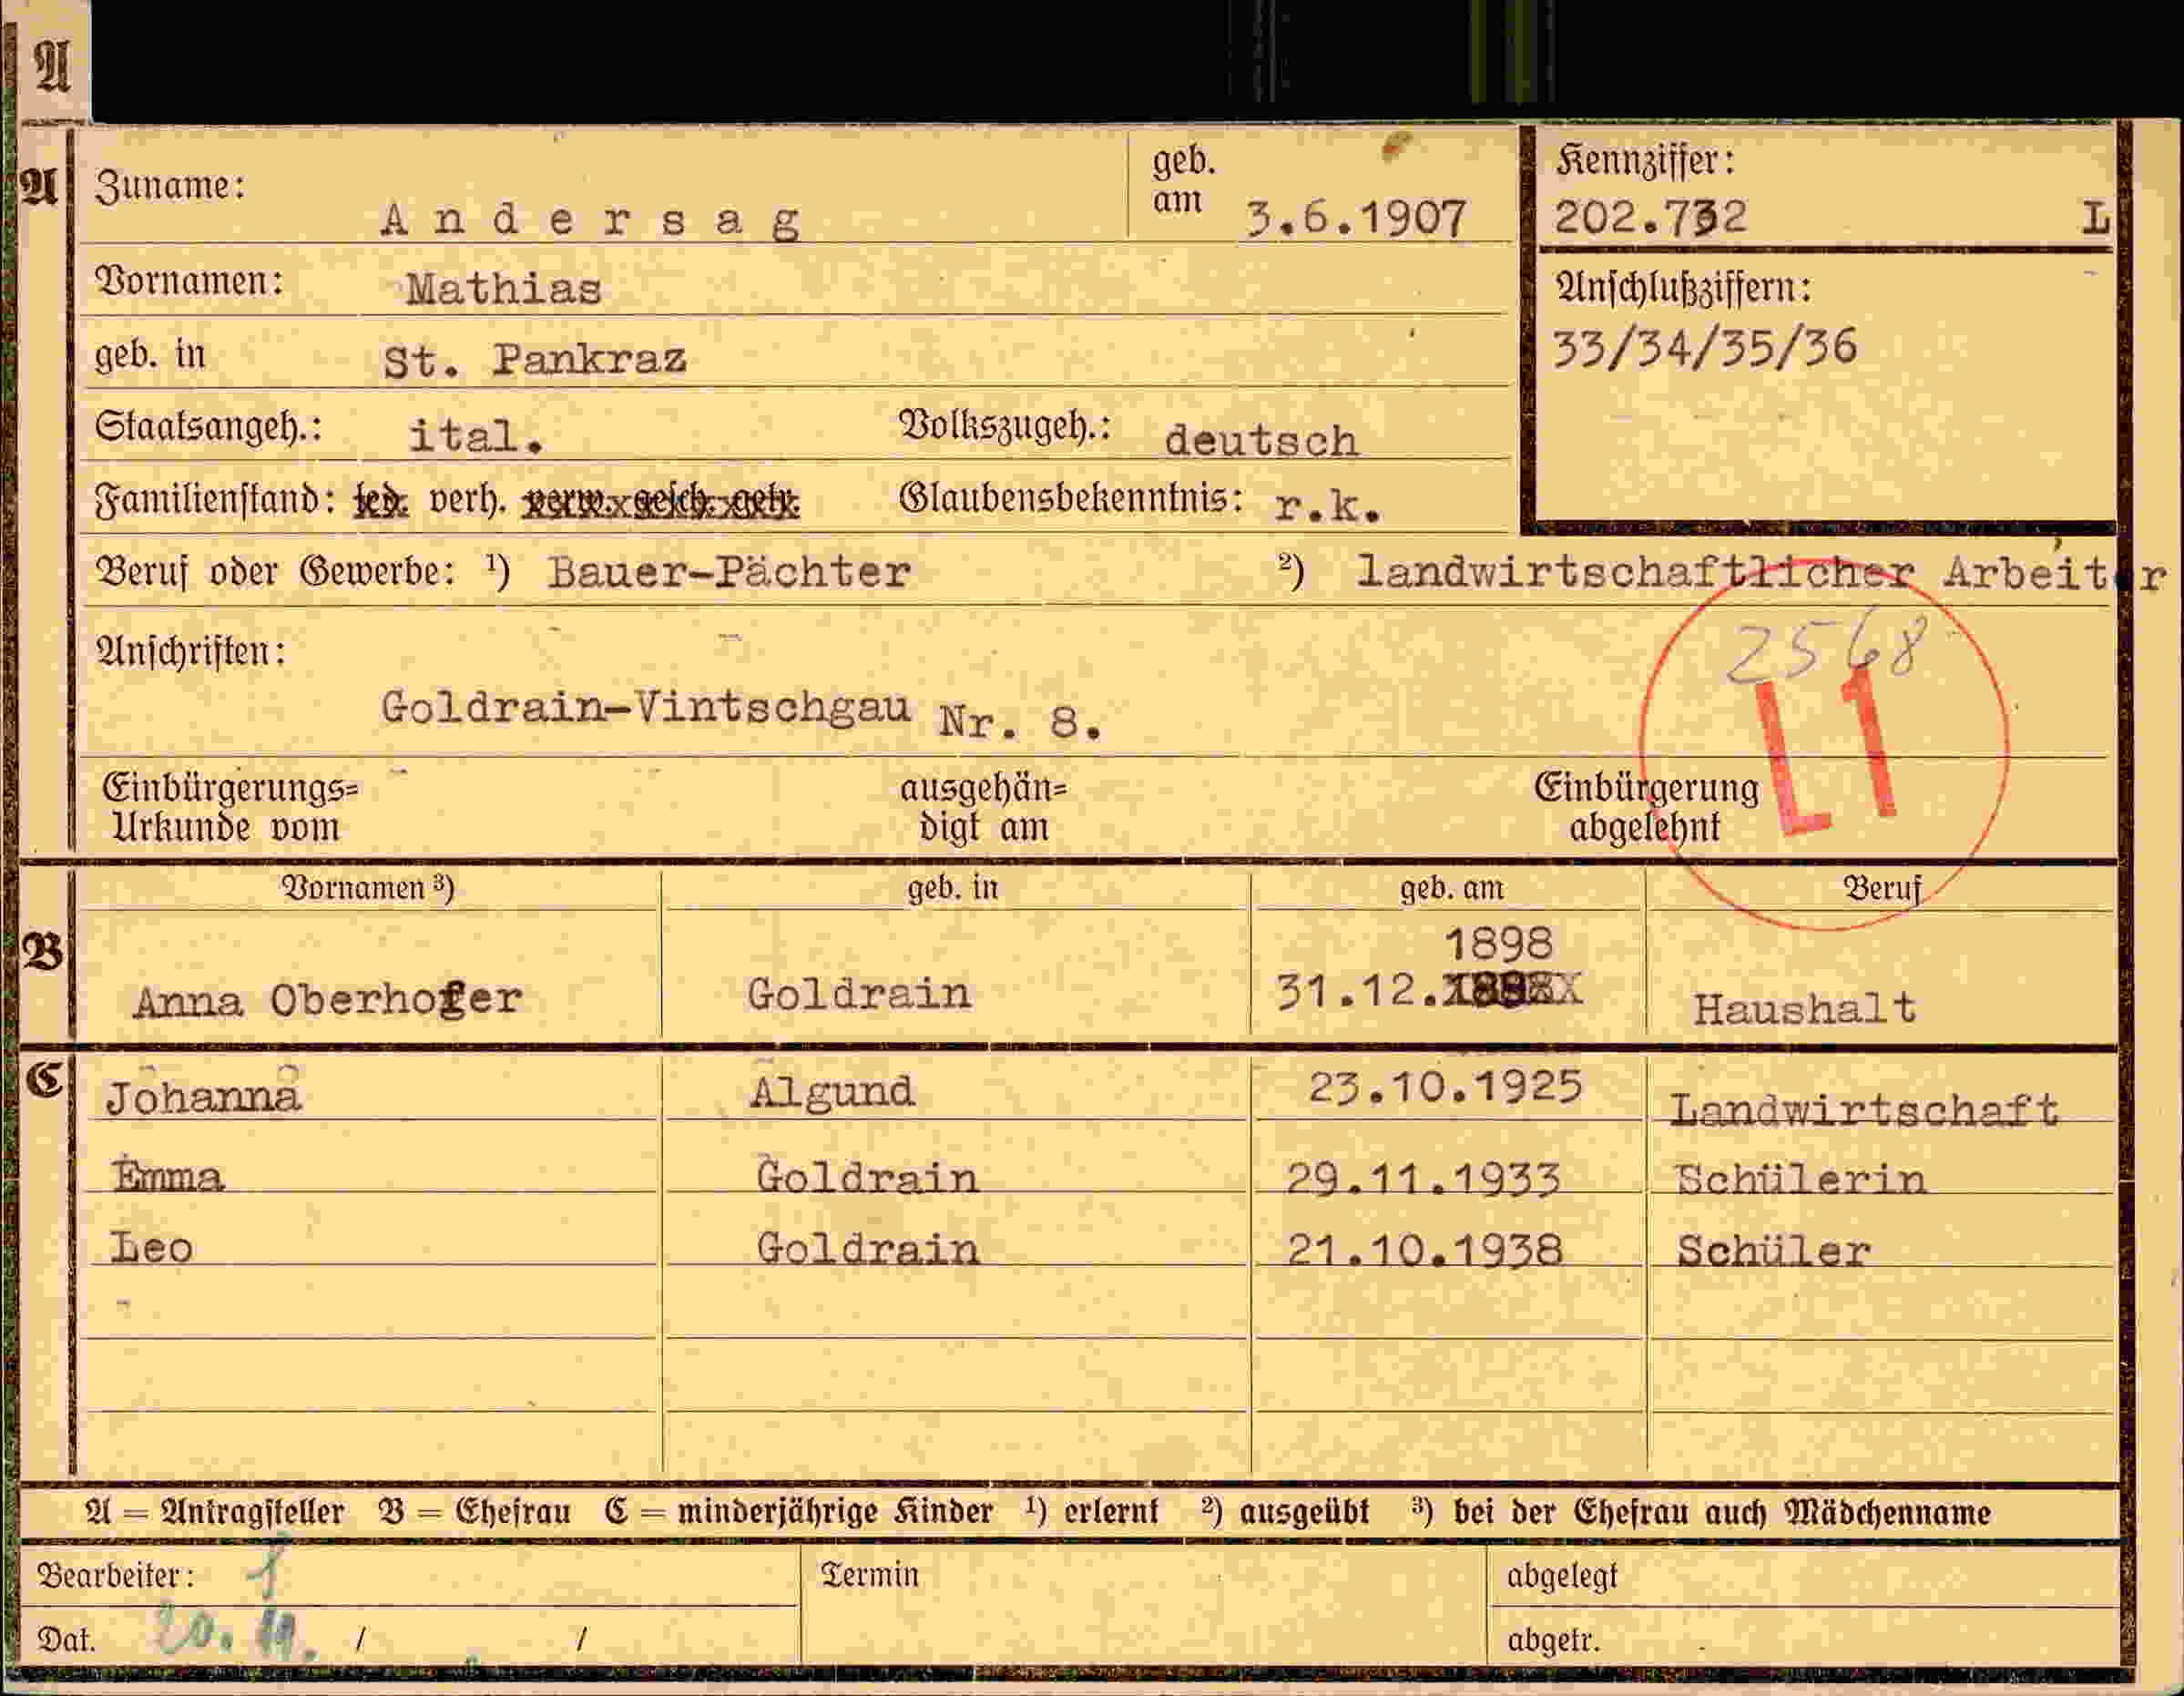 A
A
Zuname: Andersag geb. am 3.6.1907
Kennziffer:
202.732 L
Vornamen: Mathias
Anschlußziffern:
33/34/35/36
geb. in St. Pankraz
Staatsangeh.: ital. Volkszugeh.: deutsch
Familienstand: led. verh. verw. gesch. getr. Glaubensbekenntnis: r.k.
Beruf oder Gewerbe: ¹) Bauer-Pächter ²) landwirtschaftlicher Arbeiter
2568
L1
Anschriften:
Goldrain-Vintschgau Nr. 8.
Einbürgerungs= ausgehän= Einbürgerung
Urkunde vom digt am abgelehnt
Vornamen ³) geb. in geb. am Beruf
B
1898
Anna Oberhofer Goldrain 31.12. Haushalt
C
Johanna Algund 23.10.1925 Landwirtschaft
Emma Goldrain 29.11.1933 Schülerin
Leo Goldrain 21.10.1938 Schüler
A = Antragsteller B = Ehefrau C = minderjährige Kinder ¹) erlernt ²) ausgeübt ³) bei der Ehefrau auch Mädchenname
Bearbeiter: Termin abgelegt
Dat. 20. / / abgetr.